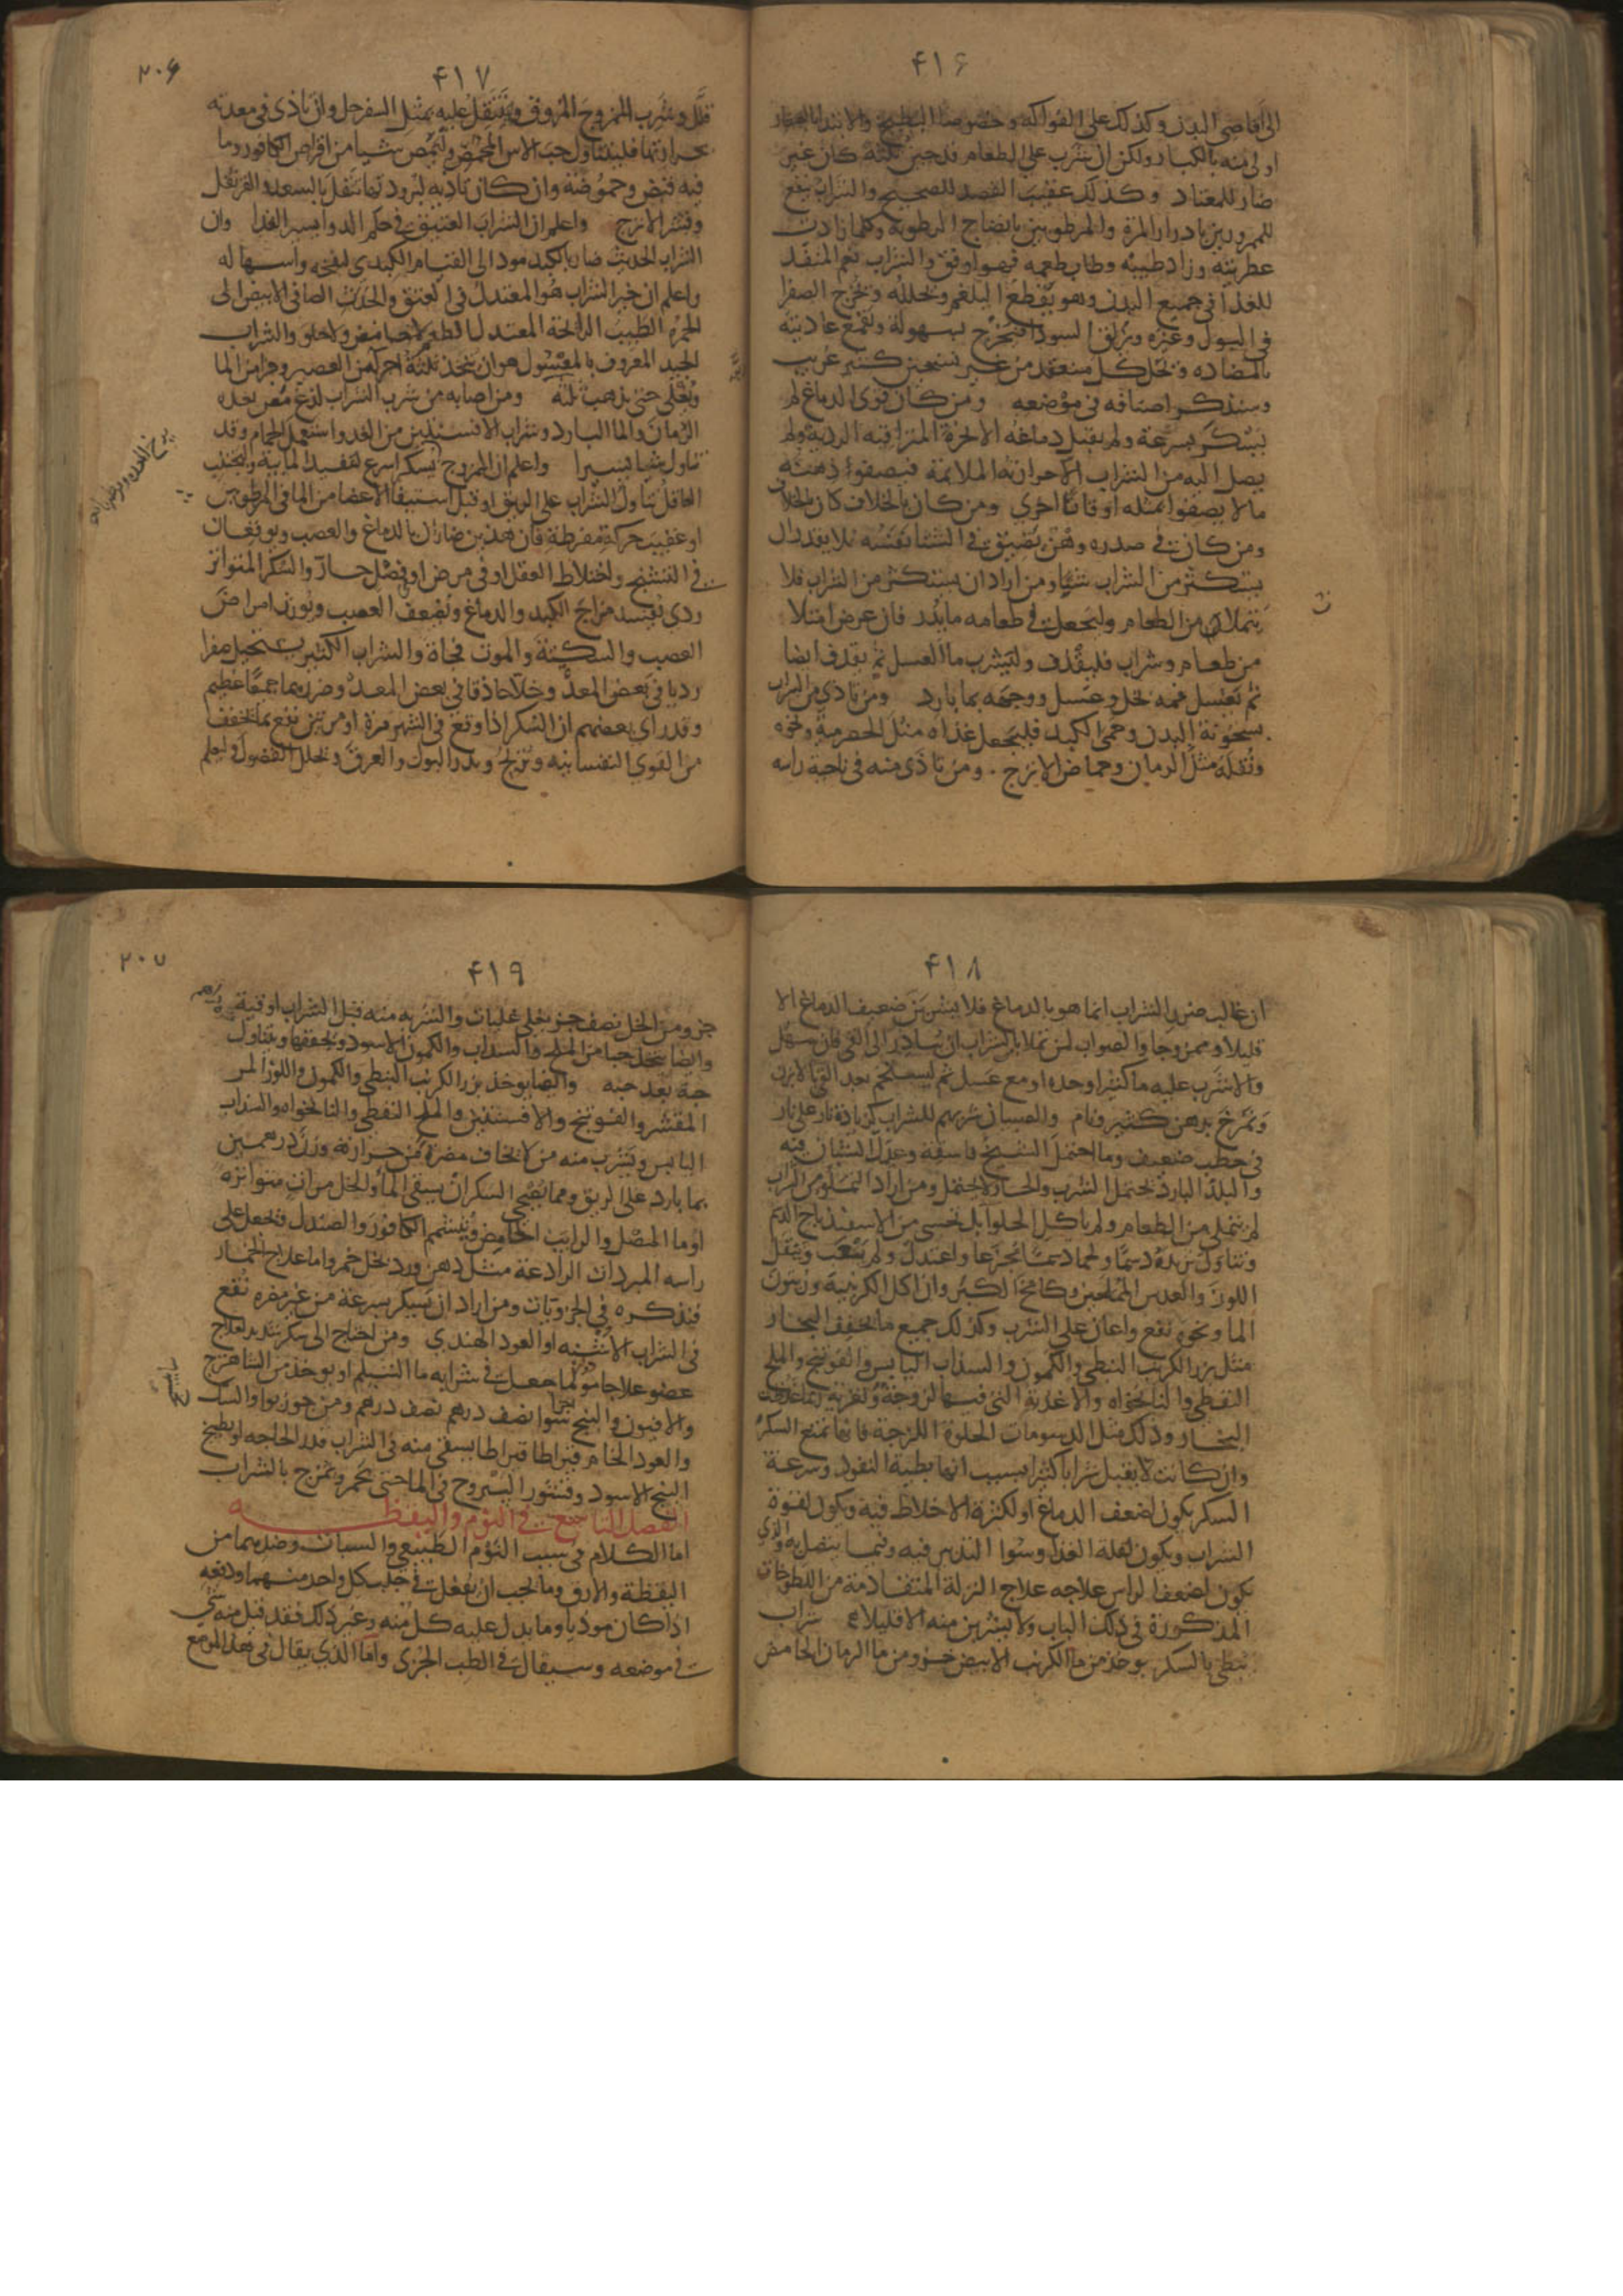 ۴۱۶
الى اقاصى البدن وكذلك على الفواكه وخصوصا البطيخ والابتدا بالصغار
اولى منه بالكبار ولكن ان شرب على الطعام قدحين ثلثة كان غير
ضار للمعتاد وكذلك عقيب الفصد للصحيح والشراب ينفع
للممرورين بادرار المرة والمرطوبين بانضاج الرطوبة وكلما زادت
عطريته وزاد طيبه وطاب طعمه فهو اوفق والشراب نعم المنفذ
للغذا فى جميع البدن وهو يقطع البلغم ويحلله ويخرج الصفرا
فى البول وغيره ويزلق السودا فيخرج بسهولة ويقمع عاديته
بالمضاده ويحل كل منعقد من غير تسخين كثير غريب
وسنذكر اصنافه فى موضعه ومن كان قوى الدماغ لم
يسكر بسرعة ولم يقبل دماغه الابخرة المتراقيه الردية ولم
يصل اليه من الشراب الا حرارته الملائمة فيصفوا ذهنه
ما لا يصفوا بمثله اوقاتا اخرى ومن كان بالخلاف كان بالخلاف
ومن كان فى صدره وهن يضيق فى الشتا نفسه فلا يقدر ان
يستكثر من الشراب شيا ومن اراد ان يستكثر من الشراب فلا
يتملان من الطعام وليجعل فى طعامه ما يدر فان عرض امتلا
من طعام وشراب فليقذف وليشرب ما العسل ثم يقذف ايضا
ثم يغسل فمه بخل وعسل ووجهه بما بارد ومن تاذى من الشراب
بسخونة البدن وحمى الكبد فليجعل غذاه مثل الحصرمية ونحوه
ونقله مثل الرمان وحماض الاترج ومن تاذى منه فى ناحية راسه
۴۱۷
۲۰۶
قلل وشرب الممزوج المروق وينتقل عليه بمثل السفرجل وان تاذى فى معدته
بحرارتها فليتناول حب الاس المحمص وليمص شيا من اقراص الكافور وما
فيه قبض وحموضة وان كان تاذيه لبرودتها تنقل بالسعد والقرنفل
وقشر الاترج واعلم ان الشراب العتيق فى حكم الدوا يسير الغذا وان
الشراب الحديث ضار بالكبد مود الى القيام الكبدى لنفخه واسهاله
واعلم ان خير الشراب هو المعتدل فى العتق والحدث الصافى الابيض الى
الحمره الطيب الرائحة المعتدل الطعم لا حامض ولا حلو والشراب
الجيد المعروف بالمغسول هو ان يتخذ ثلثة اجزا من العصير وجزا من الما
ويغلى حتى يذهب ثلثه ومن اصابه من شرب الشراب لذع مص بعده
الرمان والما البارد وشراب الافسنتين من الغد واستعمل الحمام وقد
تناول شيا يسيرا واعلم ان الممزوج يسكر اسرع لتنفيذ المايية ويجتنب
العاقل تناول الشراب على الريق او قبل استيفا الاعضا من الما فى المرطوبين
او عقيب حركة مفرطة فان هذين ضاران بالدماغ والعصب ويوقعان
فى التشنج واختلاط العقل او فى مرض او فضل حار والسكر المتواتر
ردى يفسد مزاج الكبد والدماغ ويضعف العصب ويورث امراض
العصب والسكتة والموت فجاة والشراب الكثير يستحيل صفرا
رديا فى بعض المعد وخلا حاذقا فى بعض المعد وضررهما جميعا عظيم
وقد راى بعضهم ان السكر اذا وقع فى الشهر مرة او مرتين نفع بما يخفف
من القوى النفسانيه ويريح ويدر البول والعرق ويحلل الفضول وليعلم
۴۱۸
ان غالب ضرر الشراب انما هو بالدماغ فلا يشربن ضعيف الدماغ الا
قليلا وممزوجا والصواب لمن تملا بالشراب ان يبادر الى القى فان سهل
والا شرب عليه ما كثيرا وحده او مع عسل ثم ليستحم بعد القى بالابزن
وتمرخ بدهن كثير ونام والصبيان شربهم للشراب كزيادة نار على نار
فى حطب ضعيف وما احتمل الشيخ فاسقه وعدل الشبان فيه
والبلد البارد يحتمل الشرب والحار لا يحتمل ومن اراد التملؤ من الشراب
لم يتملى من الطعام ولم ياكل الحلوا بل تحسى من الاسفيذباج الدسم
وتناول ثريدة دسما ولحما دسما مجزعا واعتدل ولم يتعب وينتقل
اللوز والعدس المملحين وكامخ الكبر وان اكل الكرنبية وزيتون
الما ونحوه نفع واعان على الشرب وكذلك جميع ما يخفف البخار
مثل بزر الكرنب النبطى والكمون والسذاب اليابس والفوتنج والملح
النفطى والنانخواه والاغذية التى فيها لزوجة وتغرية
البخار وذلك مثل الدسومات الحلوة اللزجة فانها تمنع السكر
وان كانت لا تقبل شرابا كثيرا بسبب انها بطية النفوذ وسرعة
السكر يكون لضعف الدماغ او لكثرة الاخلاط فيه ويكون لقوة
الشراب ويكون لقلة الغذا وسوا التدبير فيه وفيما يتصل به والذى
يكون لضعف الراس علاجه علاج النزلة المتقادمة من اللطوخات
المذكورة فى ذلك الباب ولا يشربن منه الا قليلا شراب
يبطى بالسكر يوخذ من ما الكرنب الابيض جزو ومن ما الرمان الحامض
۴۱۹
۲۰۷
جزو ومن الخل نصف جزو يغلى غليات والشربه منه قبل الشراب اوقية
وايضا يتخذ حبا من الملح والسذاب والكمون الاسود ويجففها ويتناول
حبة بعد حبه وايضا يوخذ بزر الكرنب النبطى والكمون واللوز المر
المقشر والفوتنج والافسنتين والملح النفطى والنانخواه والسذاب
اليابس ويشرب منه من لا يخاف مضرة من حرارته وزن درهمين
بما بارد على الريق ومما يصحى السكران يسقى الما والخل مرات متواترة
او ما المصل والرايب الحامض ويشتمم الكافور والصندل ويجعل على
راسه المبردات الرادعة مثل دهن ورد بخل خمر واما علاج الخمار
فنذكره فى الجزويات ومن اراد ان يسكر بسرعة من غير مضره نقع
فى الشراب الاشنه او العود الهندى ومن احتاج الى سكر شديد لعلاج
عضو علاجا مولما جعل فى شرابه ما الشيلم او يوخذ من الشاهترج
والافيون والبنج سوا نصف درهم نصف درهم ومن جوز بوا والسك
والعود الخام قيراطا قيراطا يسقى منه فى الشراب قدر الحاجه او يطبخ
البنج الاسود وقشور اليبروح فى الما حتى يحمر ويمزج بالشراب
الفصل التاسع فى النوم واليقظه
اما الكلام فى سبب النوم الطبيعى والسبات وضديهما من
اليقظة والارق وما يجب ان يفعل فى جلب كل واحد منهما ودفعه
اذا كان موذيا وما يدل عليه كل منه وغير ذلك فقد قيل منه شى
فى موضعه وسيقال فى الطب الجزى واما الذى يقال فى هذا الموضع